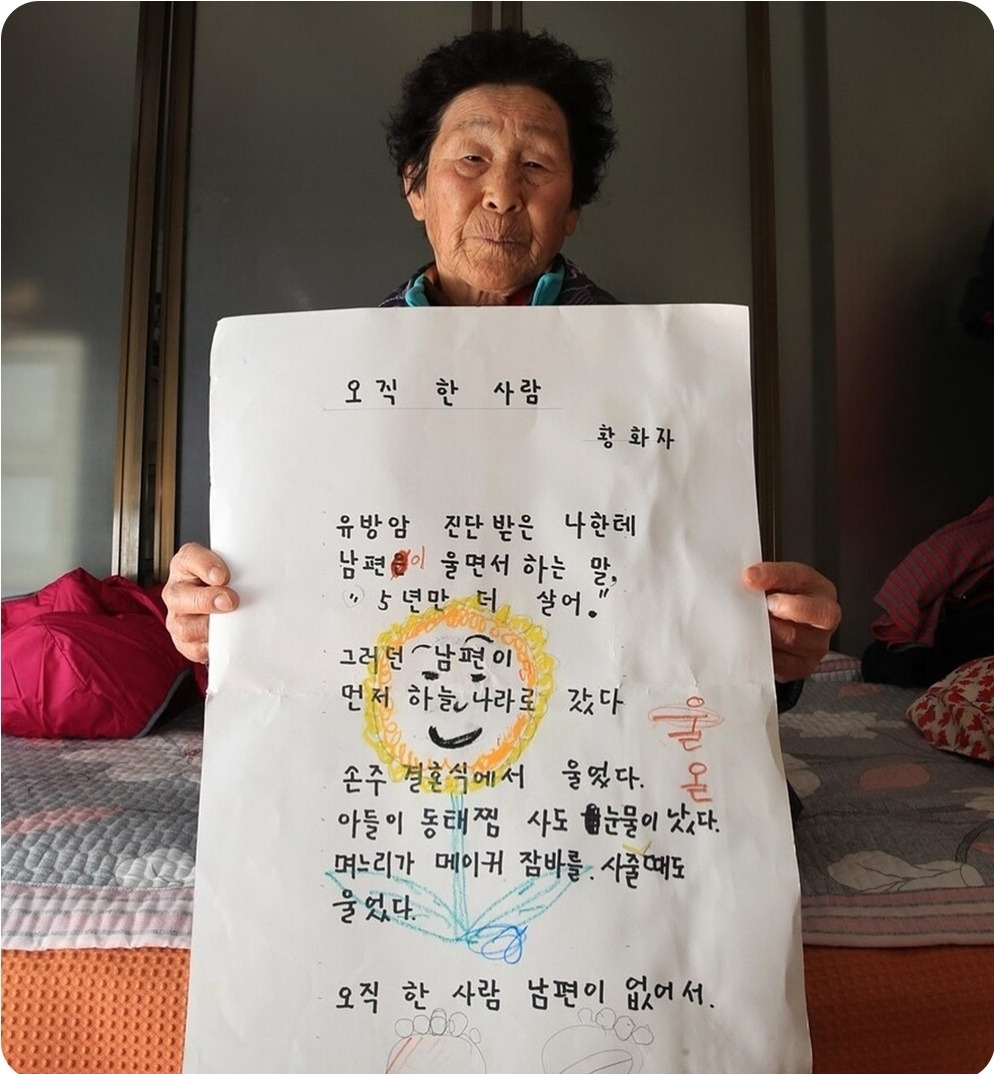 오직 한 사람
황화자
유방암 진단 받은 나한테
남편이 울면서 하는 말,
"5년만 더 살어."
그러던 남편이
먼저 하늘나라로 갔다
손주 결혼식에서 울었다.
아들이 동태찜 사도 눈물이 났다.
며느리가 메이커 잠바를 사줄 때도
울었다.
오직 한 사람 남편이 없어서.
울
올